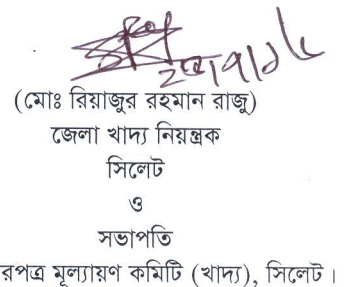 (মোঃ রিয়াজুর রহমান রাজু)
জেলা খাদ্য নিয়ন্ত্রক
সিলেট
ও
সভাপতি
রপত্র মূল্যায়ণ কমিটি (খাদ্য), সিলেট।